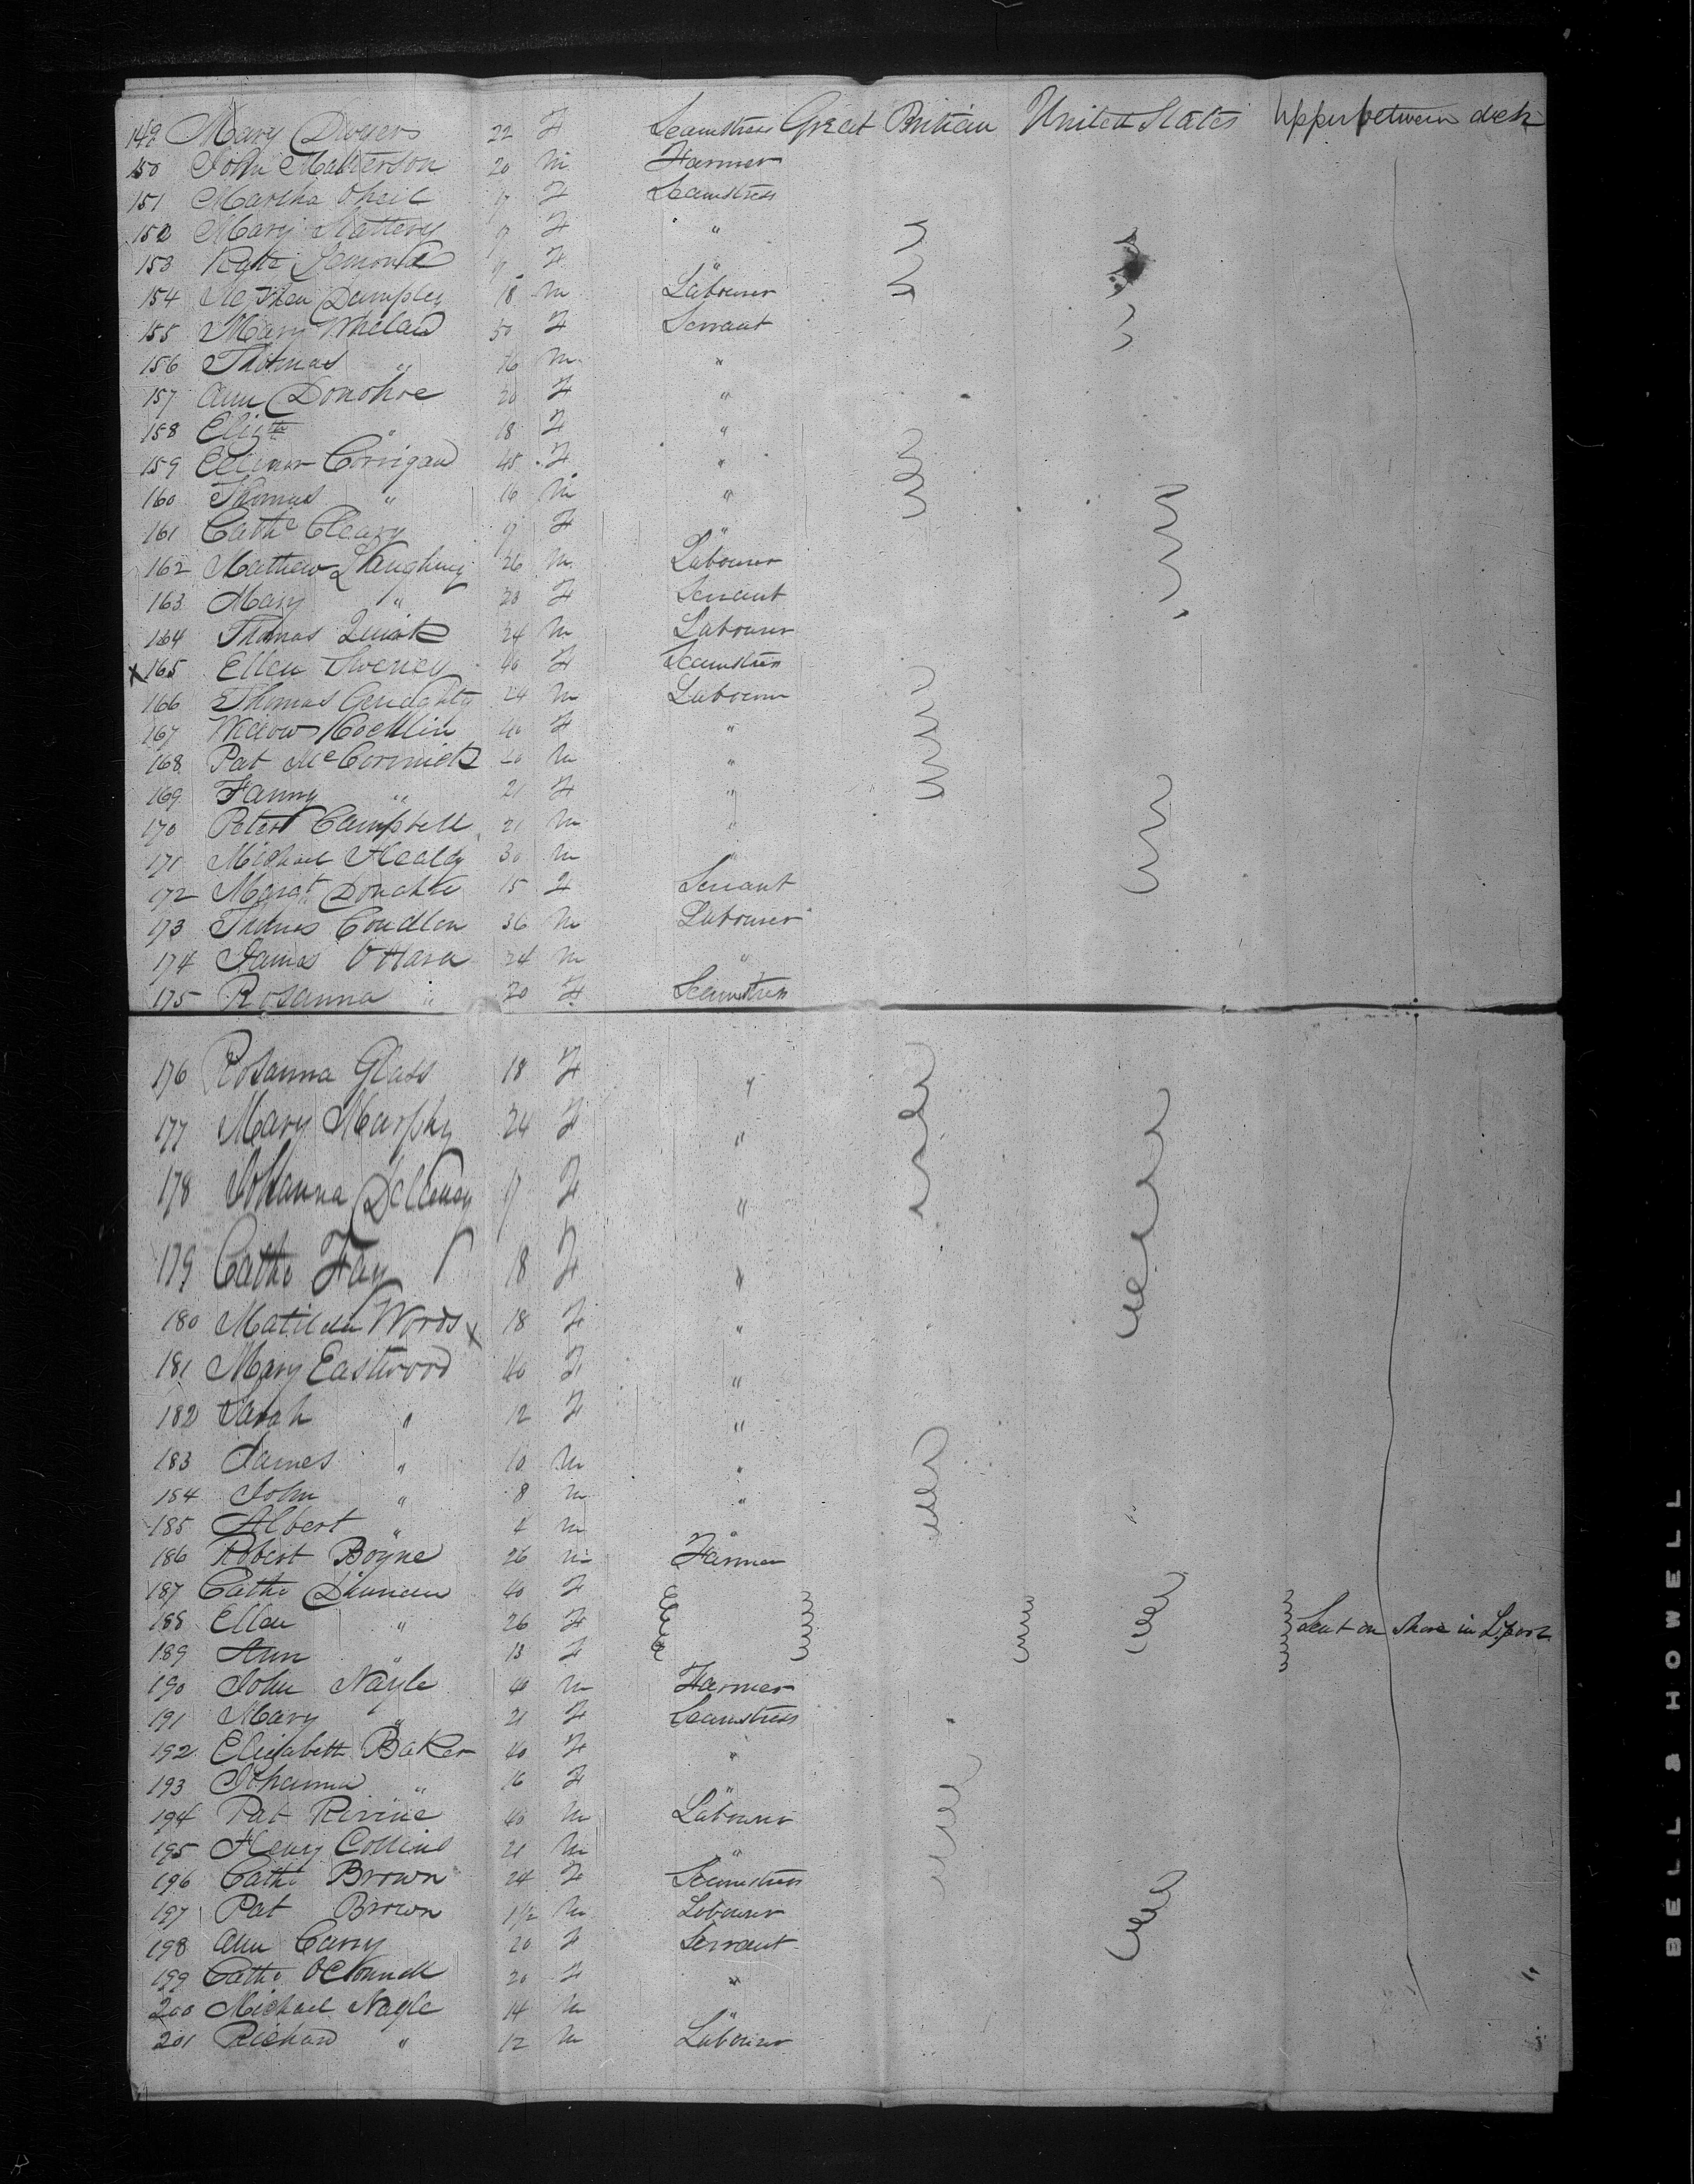 149 Mary Dwyer 22 F Seamstress Great Britian United States Upper between deck
150 John Matterson 20 m Farmer
151 Martha Oneil 17 F Seamstress
152 Mary Slattery 17 F "
153 Kate 17 F "
154 Dempsey 18 m Labourer
155 Mary Whelan 50 F Servant
156 Thomas " 16 m "
157 Ann Donohoe 20 F "
158 Elizth " 18 F "
159 Ellenor Corrigan 45 F "
160 Thomas " 16 m "
161 Cathe Cleary 17 F "
162 Mathew 26 m Labourer
163 Mary " 20 F Servant
164 Thomas 24 m Labourer
X 165 Ellen Sweney 40 F Seamstress
166 Thomas 24 m Labourer
167 Widow 40 F "
168 Pat McCormick 20 m "
169 Fanny " 21 F "
170 Peter Campbell 21 m "
171 Michael Healdy 30 m "
172 Margt Donohoe 15 F Servant
173 Thomas Condlon 36 m Labourer
174 James OHara 24 m "
175 Rosanna " 20 F Seamstress
176 Rosanna Glass 18 F "
177 Mary Murphy 24 F "
178 Johanna Dellaney 17 F "
179 Cathe Fay 18 F "
180 Matilda Words X 18 F "
181 Mary Eastwood 40 F "
182 Sarah " 12 F "
183 James " 10 m "
184 John " 8 m "
185 Albert " 4 m "
186 Robert Boyne 26 m Farmer
187 Cathe 40 F
188 Ellen " 26 F Sent on shore in L.pool
189 Ann " 13 F
190 John Nagle 40 m Farmer
191 Mary " 21 F Seamstress
192 Elizabeth Baker 40 F "
193 Johanna " 16 F "
194 Pat Rivine 40 m Labourer
195 Henry Collins 21 m "
196 Cathe Brown 24 F Seamstress
197 Pat Brown 1 1/2 m Labourer
198 Ann Carry 20 F Servant
199 Cathe OConnell 20 F "
200 Michael Nagle 14 m "
201 Richard " 12 m Labourer
BELL & HOWELL